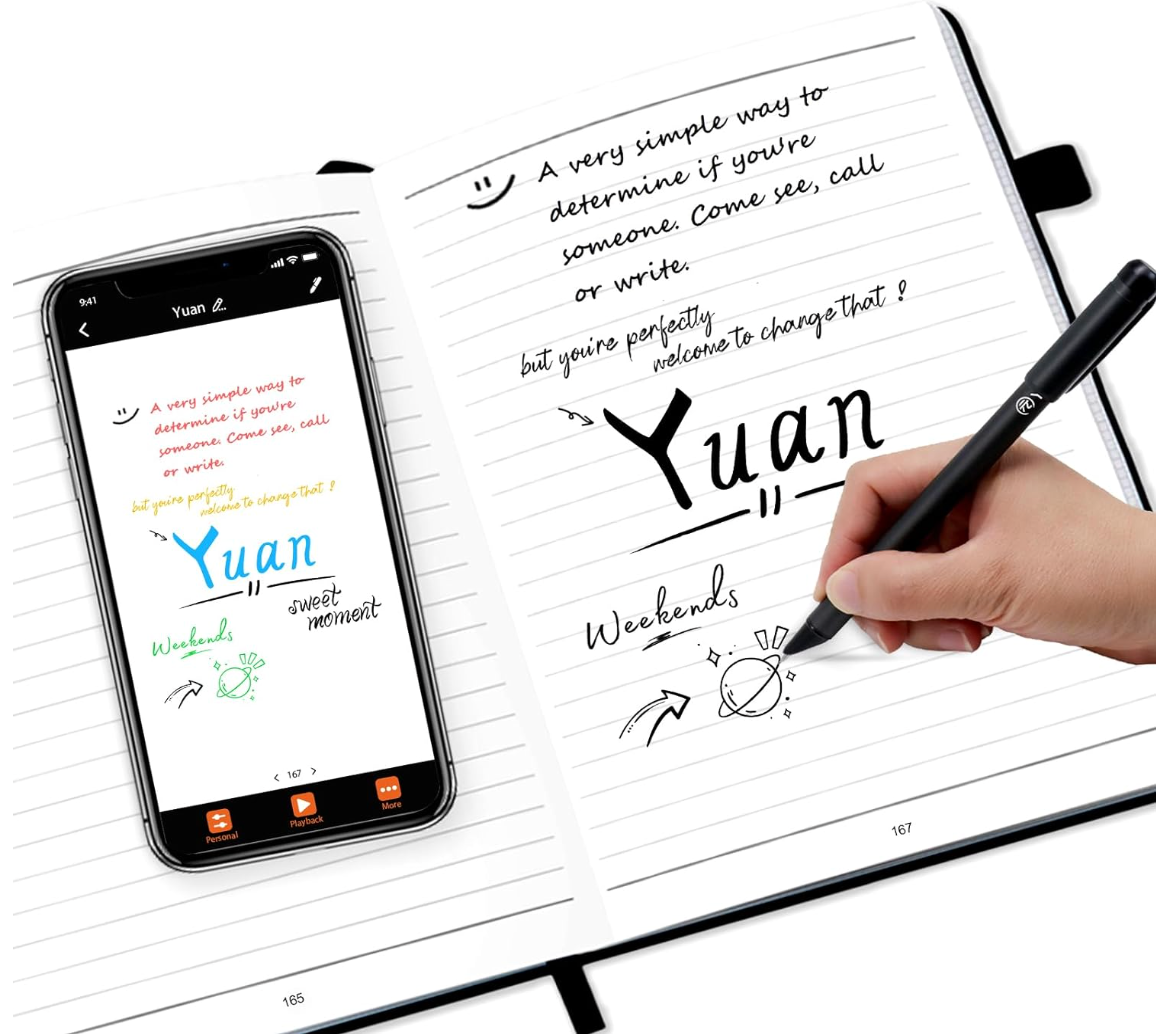 9:41
Yuan
A very simple way to
determine if you're
someone. Come see, call
or write.
but you're perfectly
welcome to change that !
Yuan
sweet
moment
Weekends
167
Personal
Playback
More
165
A very simple way to
determine if you're
someone. Come see, call
or write.
but you're perfectly
welcome to change that !
Yuan
Weekends
167